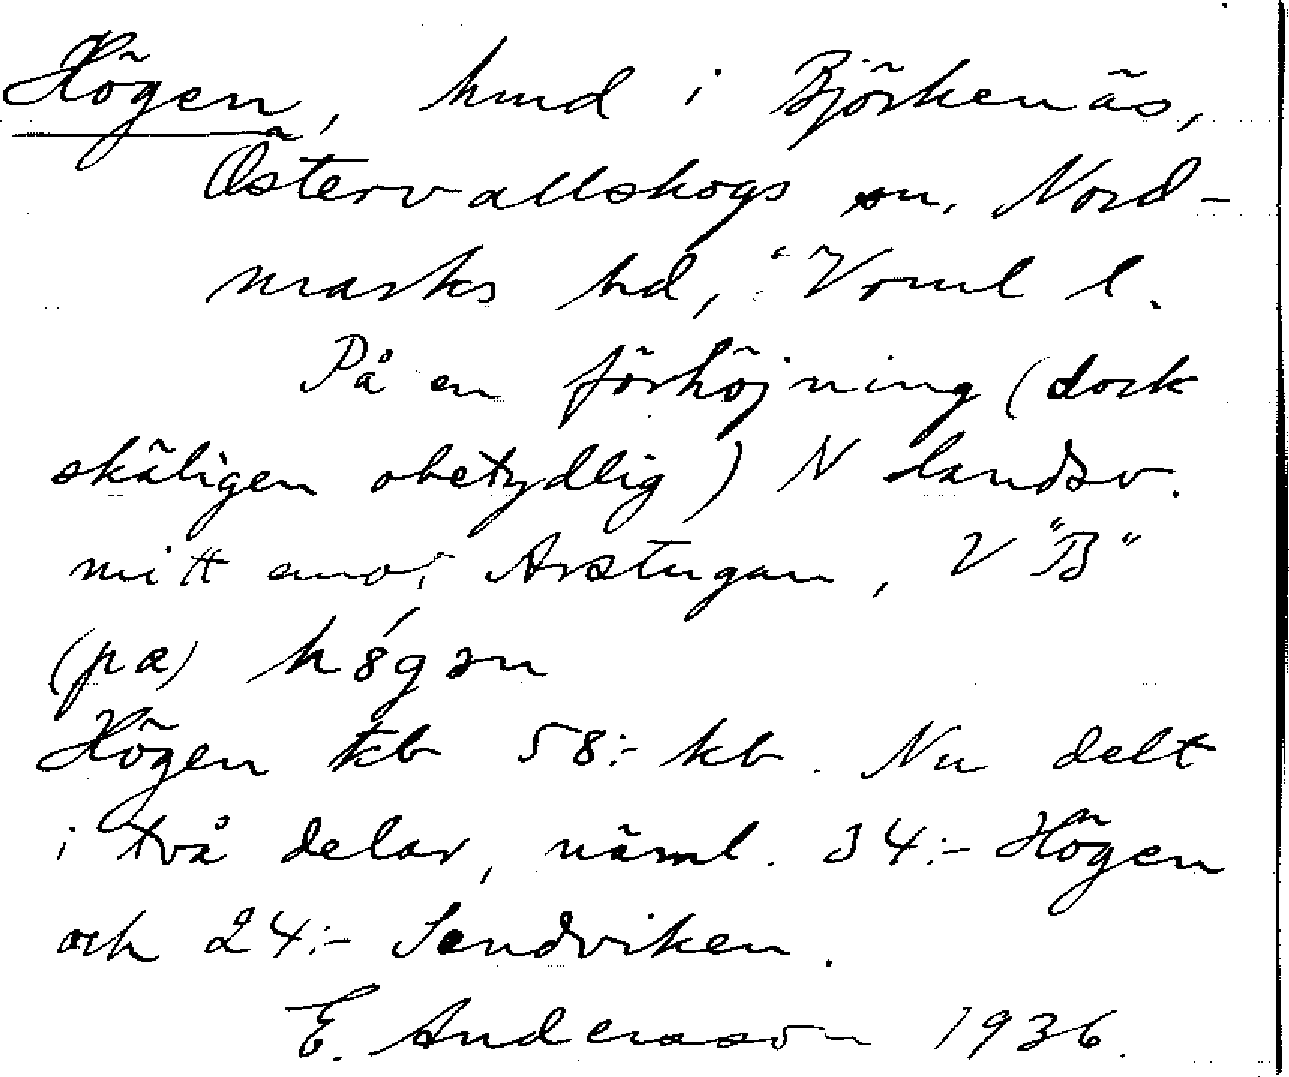 Högen, hmd i Björkenäs,
Östervallskogs sn. Nord-
marks hd, Vrml l.
På en förhöjning (dock
skäligen obetydlig) N landsv.
mitt emot Arstugan, V "B"
(pa) hǿgən
Högen kb 58:- kb. Nu delt
i två delar, näml. 34:- Högen
och 24:- Sandviken.
E. Andersson 1936.